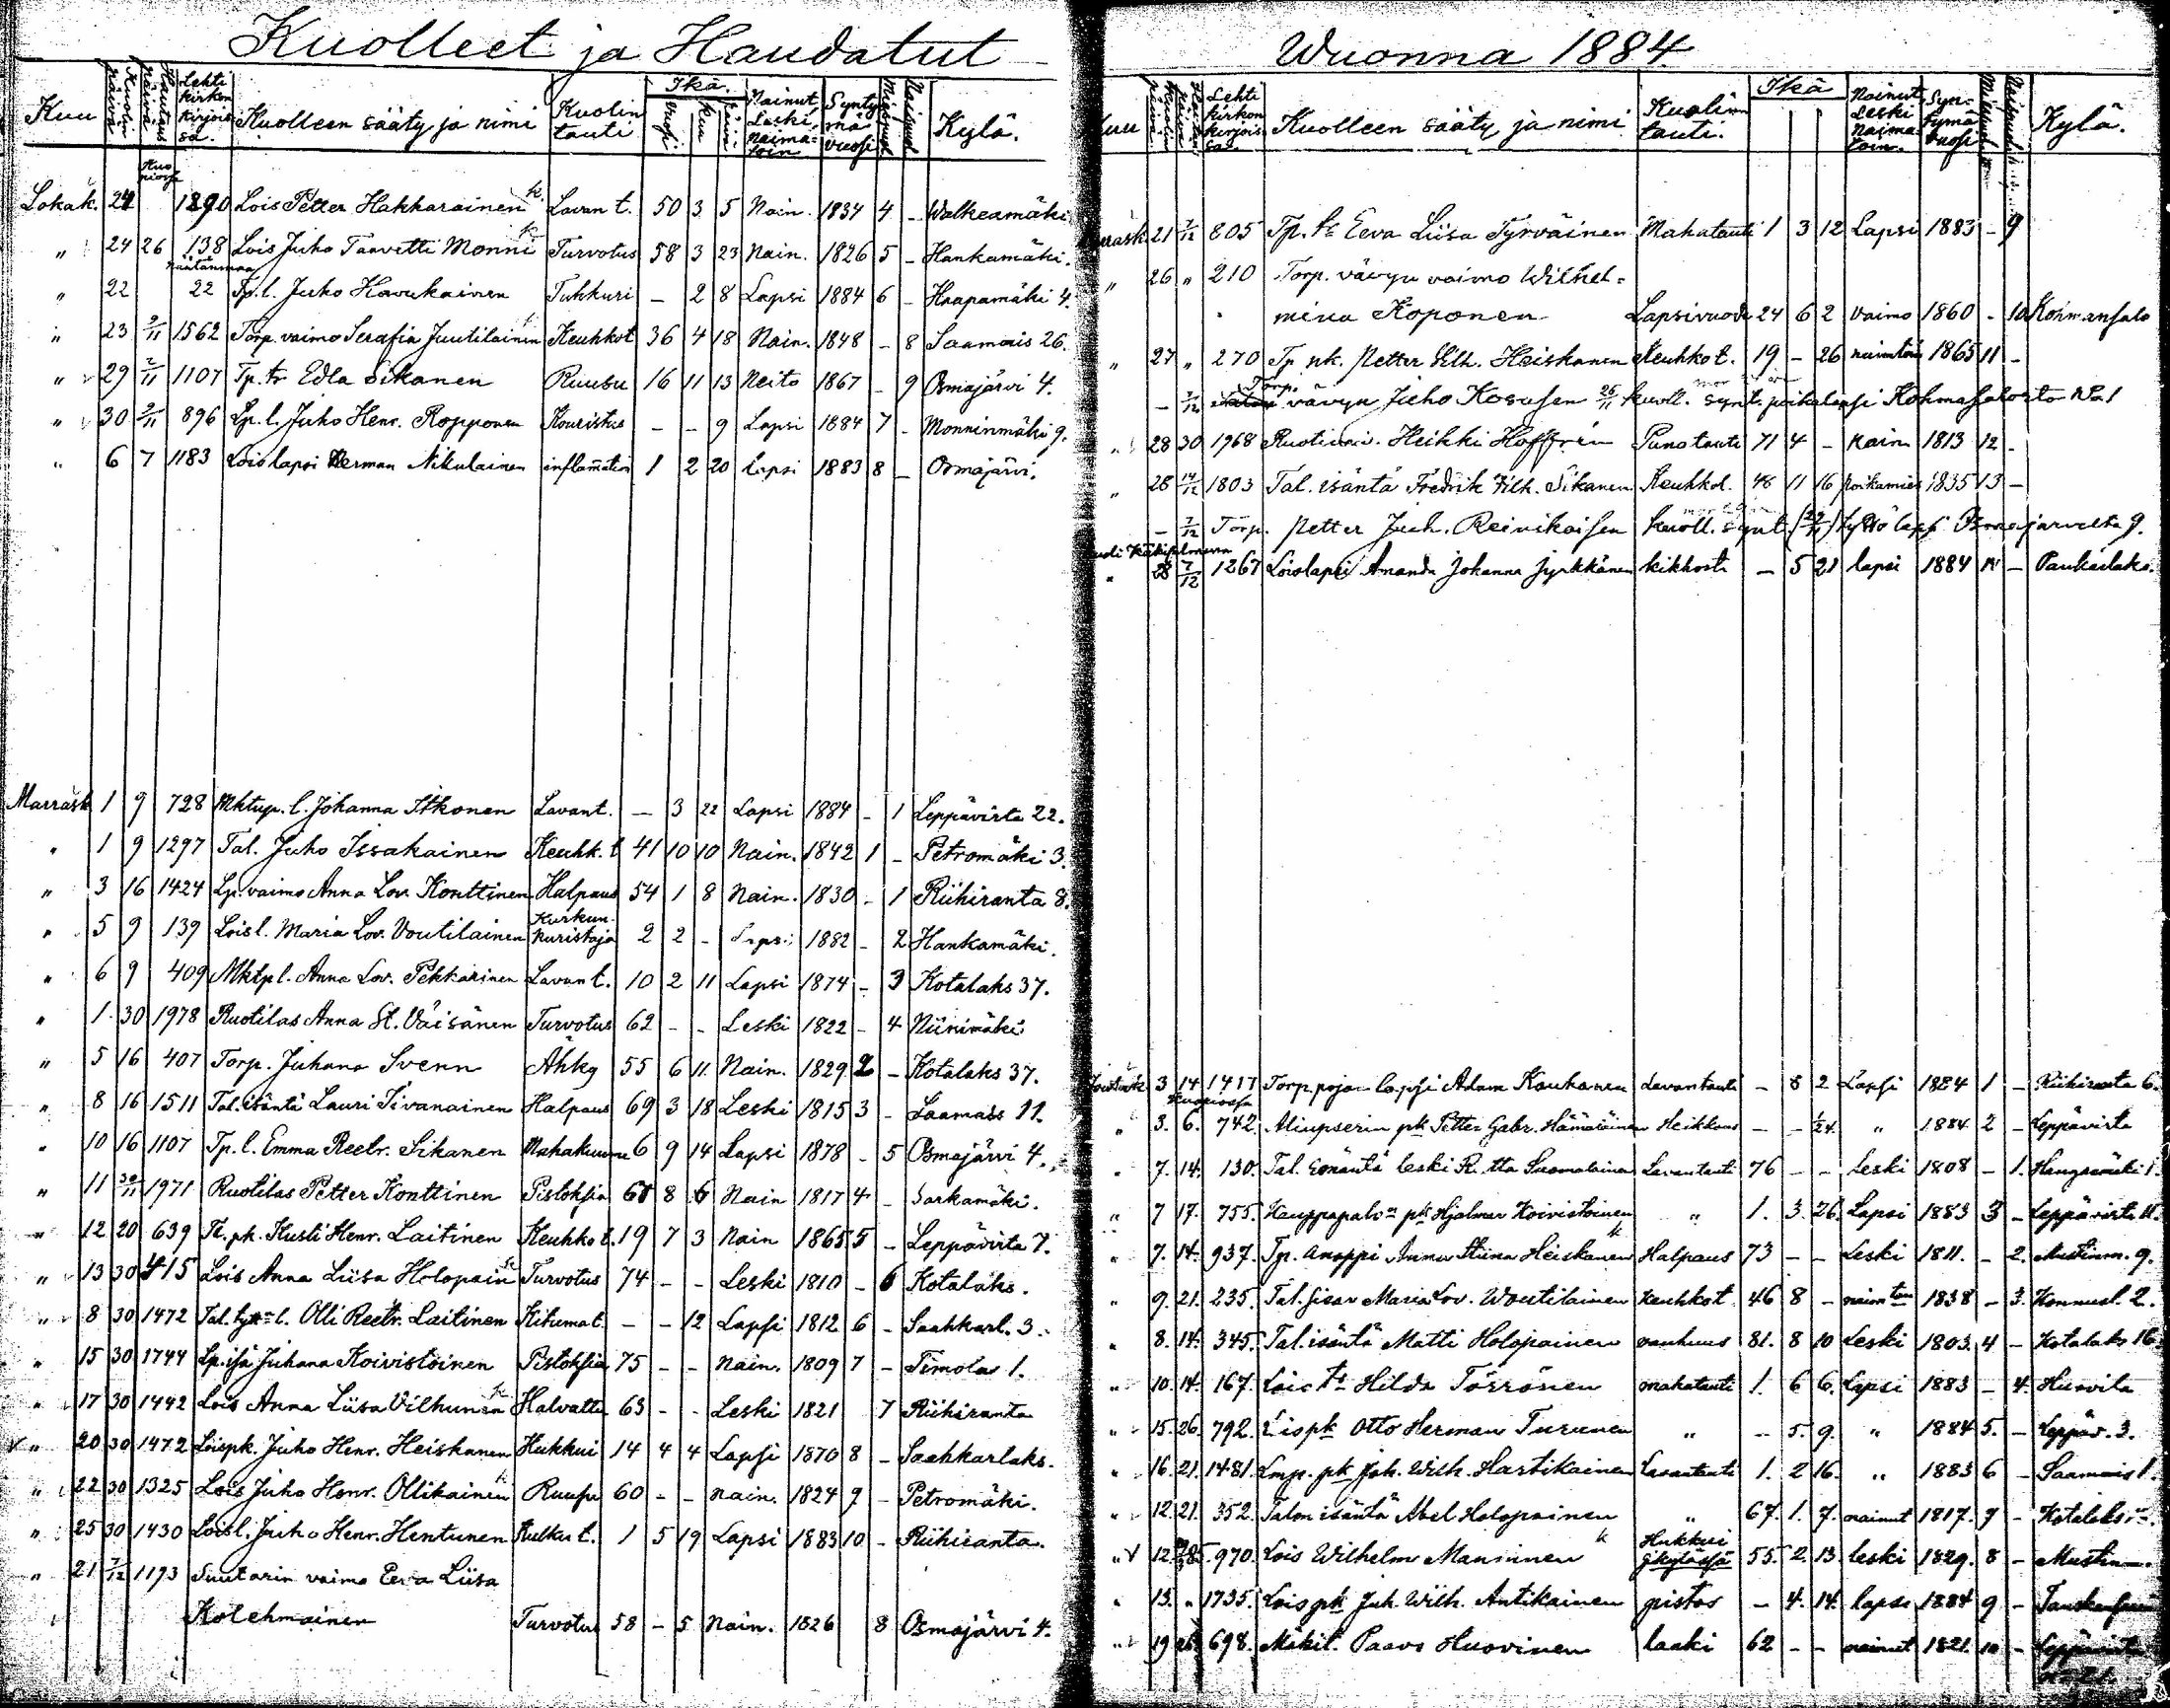 Kuolleet ja Haudatut
Kuu Kuolin päivä Hautaus päivä Lehti kirkon kirjois sa. Kuolleen sääty ja nimi Kuolin tauti Ikä. Vuosi kuu päivä Nainut Leski naima= toin Synty mä vuosi Miespuol Naispuol Kylä.
Kuo piossa
Lokak. 24 1290 Lois Petter Hakkarainen k. Lavan t. 50 3 5 Nain. 1834 4 - Walkeamäki
" 24 26 138 Lois Juho Taavetti Monni k Turvotus 58 3 23 Nain. 1826 5 - Hankamäki.
" 22 22 Tp. l. Juho Havukainen Tuhkuri - 2 8 Lapsi 1884 6 - Haapamäki 4.
" 23 2/11 1562 Torp. vaimo Serafia Juutilainen Keuhkot 36 4 18 Nain. 1848 - 8 Saamais 26.
" 29 2/11 1107 Tp. tr Edla Sikanen Ruusu 16 11 13 Neito 1867 - 9 Osmajärvi 4.
" 30 2/11 896 Lp. l. Juho Henr. Ropponen Kouristus - - 9 Lapsi 1884 7 - Monninmäki 9.
" 6 7 1183 Loislapsi Herman Nikulainen inflamation 1 2 20 Lapsi 1883 8 - Osmajärvi.
Marrask 1 9 728 Mktup. l. Johanna Itkonen Lavant. - 3 22 Lapsi 1884 - 1 Leppävirta 22.
" 1 9 1297 Tal. Juho Issakainen Keuhk. t 41 10 10 Nain. 1842 1 - Petromäki 3.
" 3 16 1424 Lp. vaimo Anna Lov. Konttinen Halpaus 54 1 8 Nain. 1830 - 1 Riihiranta 8.
" 5 9 139 Lois l. Maria Lov. Voutilainen Kurkun- kuristaja 2 2 - Lapsi 1882 - 2 Hankamäki.
" 6 9 409 Mktp l. Anna Lov. Pekkarinen Lavan t. 10 2 11 Lapsi 1874 - 3 Kotalaks 37.
" 1 30 1978 Ruotilas Anna St. Väisänen Turvotus 62 - - Leski 1822 - 4 Niinimäki
" 5 16 407 Torp. Juhana Svenn Ähky 55 6 11 Nain. 1829 2 - Kotalaks 37.
" 8 16 1511 Tal. isäntä Lauri Iivanainen Halpaus 69 3 18 Leski 1815 3 - Saamais 11.
" 10 16 1107 Tp. l. Emma Reetr. Sikanen Mahakuume 6 9 14 Lapsi 1878 - 5 Osmajärvi 4.
" 11 30/11 1971 Ruotilas Petter Konttinen Pistoksia 67 8 6 Nain 1817 4 - Sarkamäki.
" 12 20 639 Tl. pk. Kusti Henr. Laitinen Keuhko t. 19 7 3 Nain 1865 5 - Leppävirta 7.
" 13 30 415 Lois Anna Liisa Holopain k Turvotus 74 - - Leski 1810 - 6 Kotalaks.
" 8 30 1472 Tal. l. Olli Reetr. Laitinen Kikuma t. - - 12 Lapsi 1812 6 - Saahkarl. 3.
" 15 30 1744 Lp. isä Juhana Koivistoinen Pistoksia 75 - - Nain. 1809 7 - Timolas 1.
" 17 30 1442 Lois Anna Liisa Vilhunen k Halvattu 63 - - Leski 1821 7 Riihiranta
v " 20 30 1472 Loispk. Juho Henr. Heiskanen Hukkui 14 4 4 Lapsi 1870 8 - Saahkarlaks.
" 22 30 1325 Lois Juho Henr. Ollikainen k Ruusu 60 - - nain. 1824 9 - Petromäki.
" 25 30 1430 Lois l. Juho Henr. Hentunen Kulku t. 1 5 19 Lapsi 1883 10 - Riihiranta.
" 21 7/12 1193 Suutarin vaimo Eeva Liisa
Kolehmainen Turvotus 58 - 5 Nain. 1826 8 Osmajärvi 4.
Wuonna 1884
Kuu Lehti kirkon kirjois sa. Kuolleen sääty ja nimi Kuolin tauti. Ikä Nainut Leski Naima= toin. Syn= tymä vuosi Kylä.
21 7/12 805 Tp. tr Eeva Liisa Tyrväinen Mahatauti 1 3 12 Lapsi 1883 - 9
" 26 " 210 Torp. vävyn vaimo Wilhel=
mina Koponen Lapsivuode 24 6 2 vaimo 1860 - 10 Kohmansalo
" 27 " 270 Tp. pk. Petter Vilh. Heiskanen Keuhko t. 19 - 26 naimatoin 1865 11 -
- 7/12 Torp. vävyn Juho Kososen 25/11 kuoll. synt. poikalapsi Kohmasalosta No 1
" 28 30 1968 Ruotimi. Heikki Hoffrén Punatauti 71 4 - Nain 1813 12 -
" 28 14/12 1803 Tal. isäntä Fredrik Vilh. Sikanen Keuhkot. 48 11 16 poikamies 1835 13 -
- 7/12 Torp. Petter Juh. Reinikaisen kuoll. synt. tyttö lapsi Osmajärveltä 9.
28 7/12 1267 Loislapsi Amanda Johanna Jyrkkänen kikhosti - 5 21 lapsi 1884 14 - Paukarlaks.
Jouluk 3 14 1417 Torp. pojan lapsi Adam Kaukanen Lavantauti - 8 2 Lapsi 1884 1 - Riihiranta 6.
Kuopiossa
" 3. 6. 742. Aliupserin pk Petter Gabr. Hämäläinen Heikkous - - 1/24. " 1884 2 - Leppävirta
" 7. 14. 130. Tal. Emäntä leski R..tta Suomalainen Lavantauti 76 - - Leski 1808 - 1. Hangasmäki 1.
" 7 17. 755. Kauppapalv.n pk Hjalmar Koivistoinen " 1. 3. 26. Lapsi 1883 3 - Leppävirta 11.
" 7. 14. 937. Tp. anoppi Anna Stiina Heiskanen k Halpaus 73 - - Leski 1811. - 2. Mustinm. 9.
" 9. 21. 235. Tal. sisar Maria Lov. Woutilainen keuhkot. 46 8 - naimton 1838 - 3. Konnusl. 2.
" 8. 14. 345. Tal. isäntä Matti Holopainen vanhuus 81. 8 10 Leski 1803. 4 - Kotalaks 16.
" 10. 14. 167. Lois tr Hilda Törrönen mahatauti 1. 6 6. Lapsi 1883 - 4. Huovila
" 15. 26. 792. Loispk Otto Herman Turunen " - 5. 9. " 1884 5. - Leppäv. 3.
" 16. 21. 1481. Lmp. pk Joh. Wilh. Hartikainen Lavantauti 1. 2 16. " 1883 6 - Saamais 1.
" 12. 21. 352. Talon isäntä Abel Holopainen " 67. 1. 7. nainut 1817. 7 - Kotalaks
" v 12. 970. Lois Wilhelm Manninen k Hukkui 55. 2 13. leski 1829. 8 - Mustinm.
" 13. " 1735. Lois pk Juh. Wilh. Antikainen pistos - 4. 14. lapsi 1884 9 -
" 19 26 698. Mäkit. Paavo Huovinen laaki 62 - - nainut 1821. 10 - Leppävirta